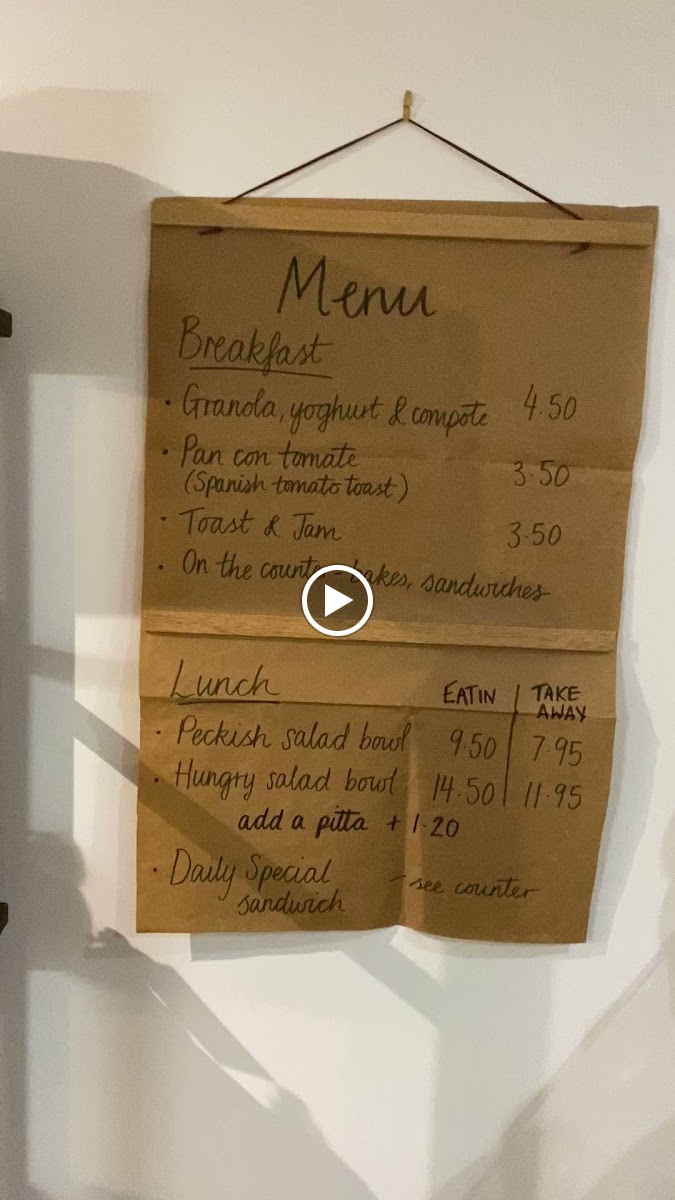 Menu
Breakfast
• Granola, yoghurt & compote 4.50
• Pan con tomate 3.50
(Spanish tomato toast)
• Toast & Jam 3.50
• On the counter - bakes, sandwiches
Lunch EAT IN | TAKE AWAY
• Peckish salad bowl 9.50 | 7.95
• Hungry salad bowl 14.50 | 11.95
add a pitta + 1.20
• Daily Special - see counter
sandwich